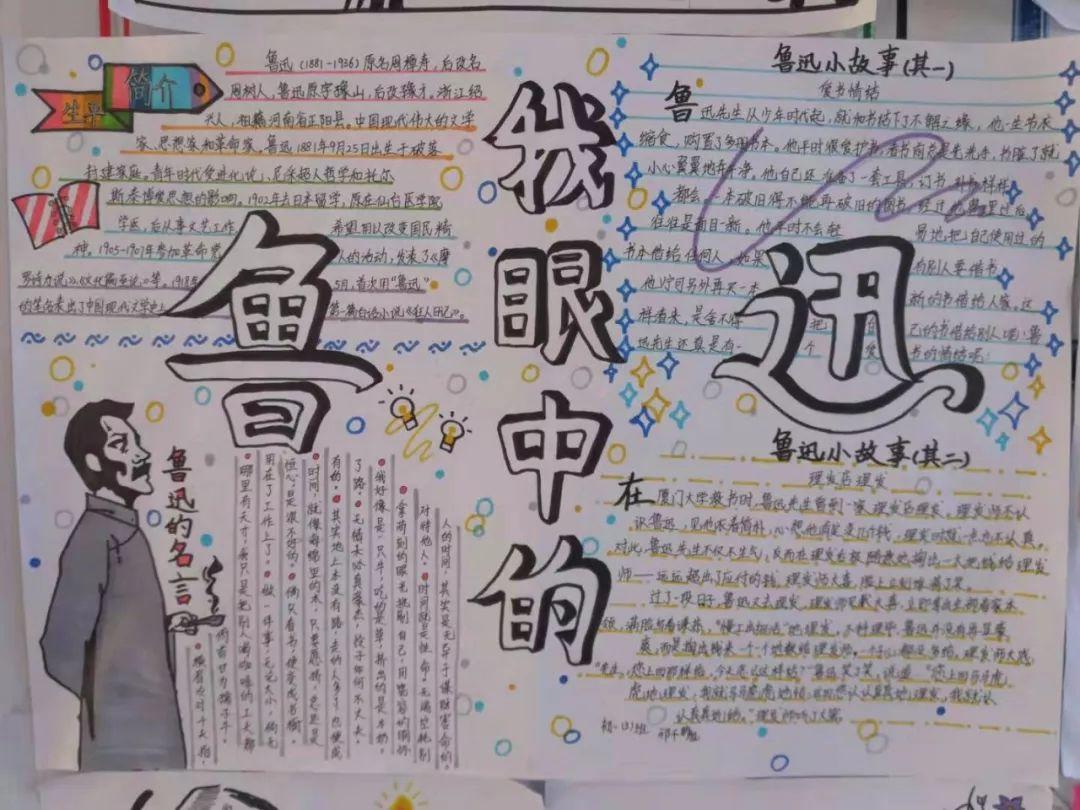 我眼中的
鲁迅
生平
简介
鲁迅(1881-1936)原名周樟寿,后改名
周树人,鲁迅原字豫山,后改豫才,浙江绍
兴人,祖籍河南省正阳县。中国现代伟大的文学
家、思想家和革命家。鲁迅1881年9月25日出生于破落
封建家庭。青年时代受进化论,尼采超人哲学和托尔
斯泰博爱思想的影响。1902年去日本留学,原在仙台医学院
学医,后从事文艺工作 希望用以改变国民精
神。1905-1907年参加革命党 人的活动,发表了《摩
罗诗力说》《文化偏至论》等。1918年 5月,首次用“鲁迅”
的笔名发出了中国现代文学史上 第一篇白话小说《狂人日记》。
鲁迅的名言
横眉冷对千夫指,
俯首甘为孺子牛。
哪里有天才,我只是把别人喝咖啡的工夫都
用在了工作上了。做一件事,无论大小,倘无
恒心,是很不好的。倘只看书,便变成书橱
时间,就像海绵里的水,只要愿挤,总是
有的。其实地上本没有路,走的人多了,也便成
了路。无情未必真豪杰,怜子如何不丈夫。
我好像是一只牛,吃的是草,挤出的是牛奶,
拿别的眼光挑剔自己,用宽容的
对待他人。时间就是性命,无端空耗别
人的时间,其实是无异于谋财害命的。
鲁迅小故事(其一)
爱书情结
鲁迅先生从少年时代起,就和书结下了不解之缘,他一生节衣
缩食,购置了多册书本。他平时很爱护书,看书前总是先洗手,书脏了就
小心翼翼地弄干净,他自己还准备了一套工具,订书、补书样样
都会。一本破旧得不能再破旧的图书,经过他整理过后
往往是面目一新。他平时不会轻 易地把自己使用过的
书本借给任何人,如果 有别人要借书,
他宁可另外再买一本 新的书借给人家。这
样看来,是舍不得 把 自 己的书借给别人呢!鲁
迅先生还真是有一 个 爱 书的情结呢!
鲁迅小故事(其二)
理发店理发
在厦门大学教书时,鲁迅先生曾到一家理发店理发。理发师不认
识鲁迅,见他衣着简朴,心想他肯定没几个钱,理发时就一点也不认真。
对此,鲁迅先生不仅不生气,反而在理发后极随意地掏出一大把钱给理发
师——远远超出了应付的钱。理发师大喜,脸上立刻堆满了笑。
过了一段日子,鲁迅又去理发,理发师见状大喜,立即拿出全部看家本
领,满脸写着谦恭,“慢工出细活”地理发。不料理毕,鲁迅并没有再显豪
爽,而是掏出钱来一个一个地数给理发师,一个子儿都没多给。理发师大惑:
“先生,您上回那样给,今天怎么这样给?”鲁迅笑了笑,说道:“您上回马马虎
虎地理发,我就马马虎虎地给,这回您认认真真地理发,我就认
认真真地给。”理发师听了大窘。